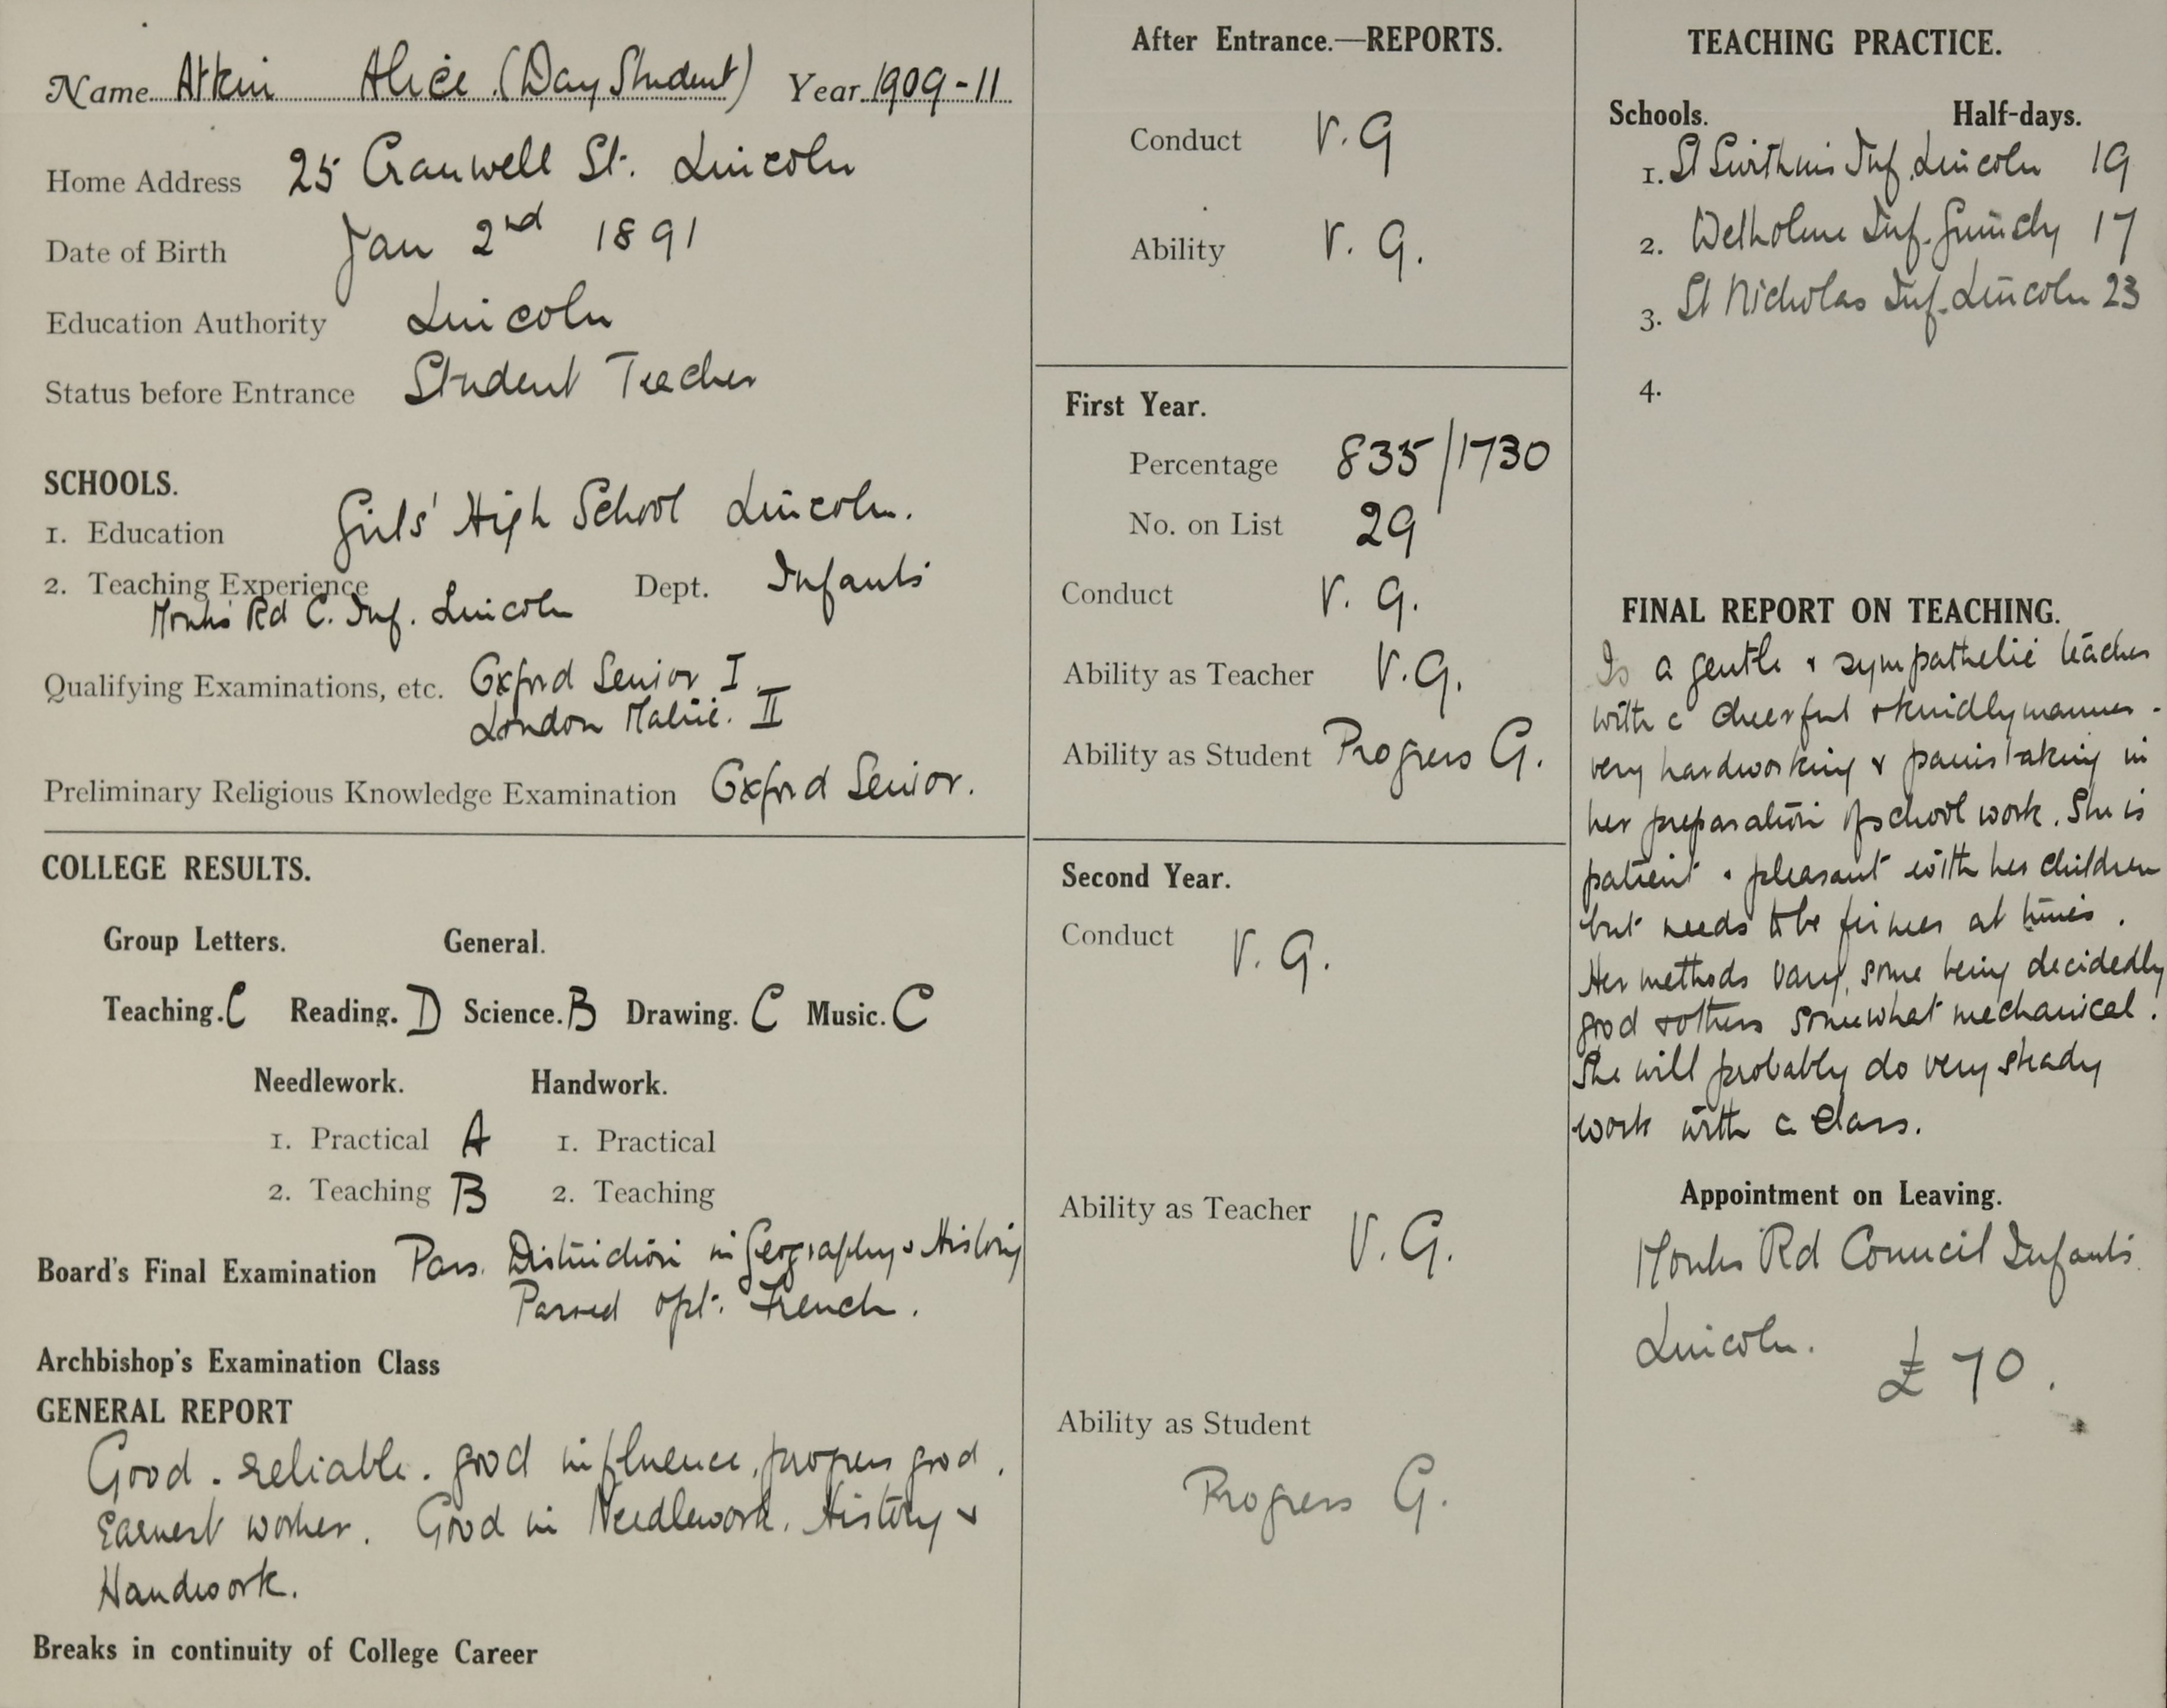 Name Atkin Alice (Day Student) Year 1909-11
Home Address 25 Cranwell St. Lincoln
Date of Birth Jan 2nd 1891
Education Authority Lincoln
Status before Entrance Student Teacher
SCHOOLS.
1. Education Girls' High School Lincoln.
2. Teaching Experience Dept. Infants
Monks Rd C. Inf. Lincoln
Qualifying Examinations, etc. Oxford Senior I.
London Matric. II
Preliminary Religious Knowledge Examination Oxford Senior.
COLLEGE RESULTS.
Group Letters. General.
Teaching. C Reading. D Science. B Drawing. C Music. C
Needlework. Handwork.
1. Practical A 1. Practical
2. Teaching B 2. Teaching
Board's Final Examination Pass. Distinction in Geography & History
Passed opt. French.
Archbishop's Examination Class
GENERAL REPORT
Good. reliable. good influence, progress good.
Earnest worker. Good in Needlework. History &
Handwork.
Breaks in continuity of College Career
After Entrance.—REPORTS.
Conduct V.G
Ability V.G.
First Year.
Percentage 835/1730
No. on List 29
Conduct V.G.
Ability as Teacher V.G.
Ability as Student Progress G.
Second Year.
Conduct V.G.
Ability as Teacher V.G.
Ability as Student
Progress G.
TEACHING PRACTICE.
Schools. Half-days.
1. St Swithins Inf. Lincoln 19
2. Welholme Inf. Grimsby 17
3. St Nicholas Inf. Lincoln 23
4.
FINAL REPORT ON TEACHING.
Is a gentle & sympathetic teacher
with a cheerful & kindly manner.
very hardworking & painstaking in
her preparation of school work. She is
patient & pleasant with her children
but needs to be firmer at times.
Her methods vary, some being decidedly
good & others somewhat mechanical.
She will probably do very steady
work with a class.
Appointment on Leaving.
Monks Rd Council Infants
Lincoln. £70.